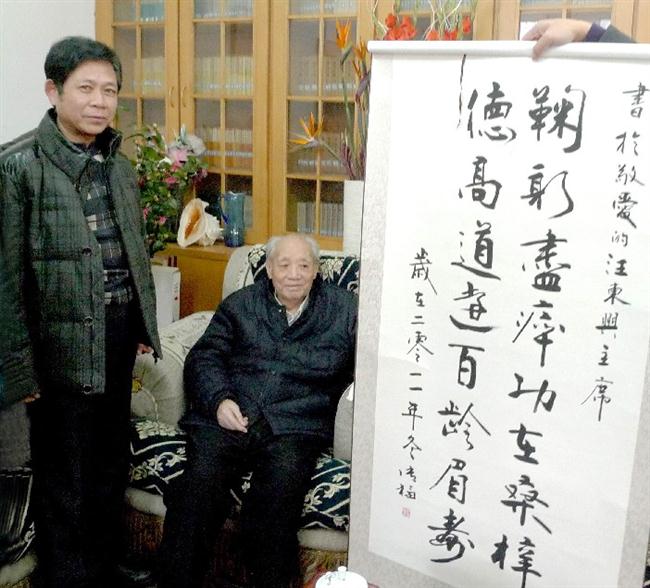 書於敬愛的汪東興主席
鞠躬盡瘁功在桑梓
德高道遠百龄眉壽
歲在二零一一年冬